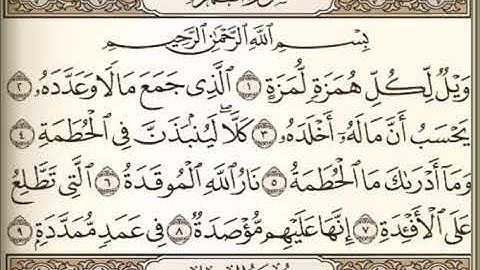 بِسْمِ اللَّهِ الرَّحْمَٰنِ الرَّحِيمِ
وَيْلٌ لِّكُلِّ هُمَزَةٍ لُّمَزَةٍ ١ الَّذِى جَمَعَ مَالًا وَعَدَّدَهُۥ ٢
يَحْسَبُ أَنَّ مَالَهُۥٓ أَخْلَدَهُۥ ٣ كَلَّا ۖ لَيُنۢبَذَنَّ فِى الْحُطَمَةِ ٤
وَمَآ أَدْرَىٰكَ مَا الْحُطَمَةُ ٥ نَارُ اللَّهِ الْمُوقَدَةُ ٦ الَّتِى تَطَّلِعُ
عَلَى الْأَفْـِٔدَةِ ٧ إِنَّهَا عَلَيْهِم مُّؤْصَدَةٌ ٨ فِى عَمَدٍ مُّمَدَّدَةٍۭ ٩